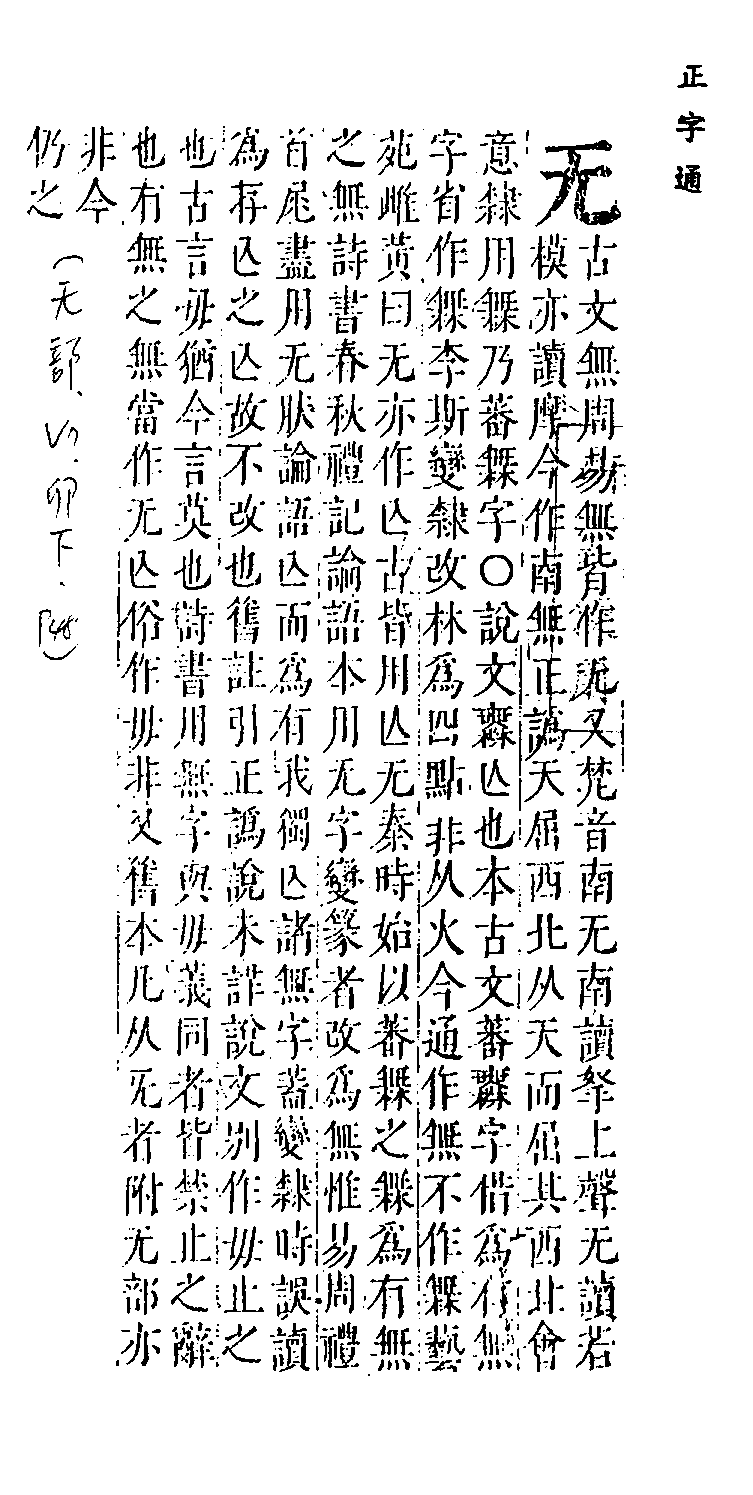 正字通
无
古文無周易無皆作无又梵音南无南讀拏上聲无讀若
模亦讀摩今作南無正譌天屈西北从天而屈其西北會
意隸用𣞣乃蕃𣞣字○說文𣠮亾也本古文蕃𣞣字借爲有無
字省作𣞣李斯變隸改林爲四點非从火今通作無不作𣞣藝
苑雌黃曰无亦作亾古皆用亾无秦時始以蕃𣞣之𣞣爲有無
之無詩書春秋禮記論語本用无字變篆者改爲無惟易周禮
首尾盡用无肰論語亾而爲有我獨亾諸無字蓋變隸時誤讀
爲存亾之亾故不改也舊註引正譌說未詳說文别作毋止之
也古言毋猶今言莫也詩書用無字與毋義同者皆禁止之辭
也有無之無當作无亾俗作毋非又舊本凡从旡者附无部亦
非今
仍之
(无部、卯下、